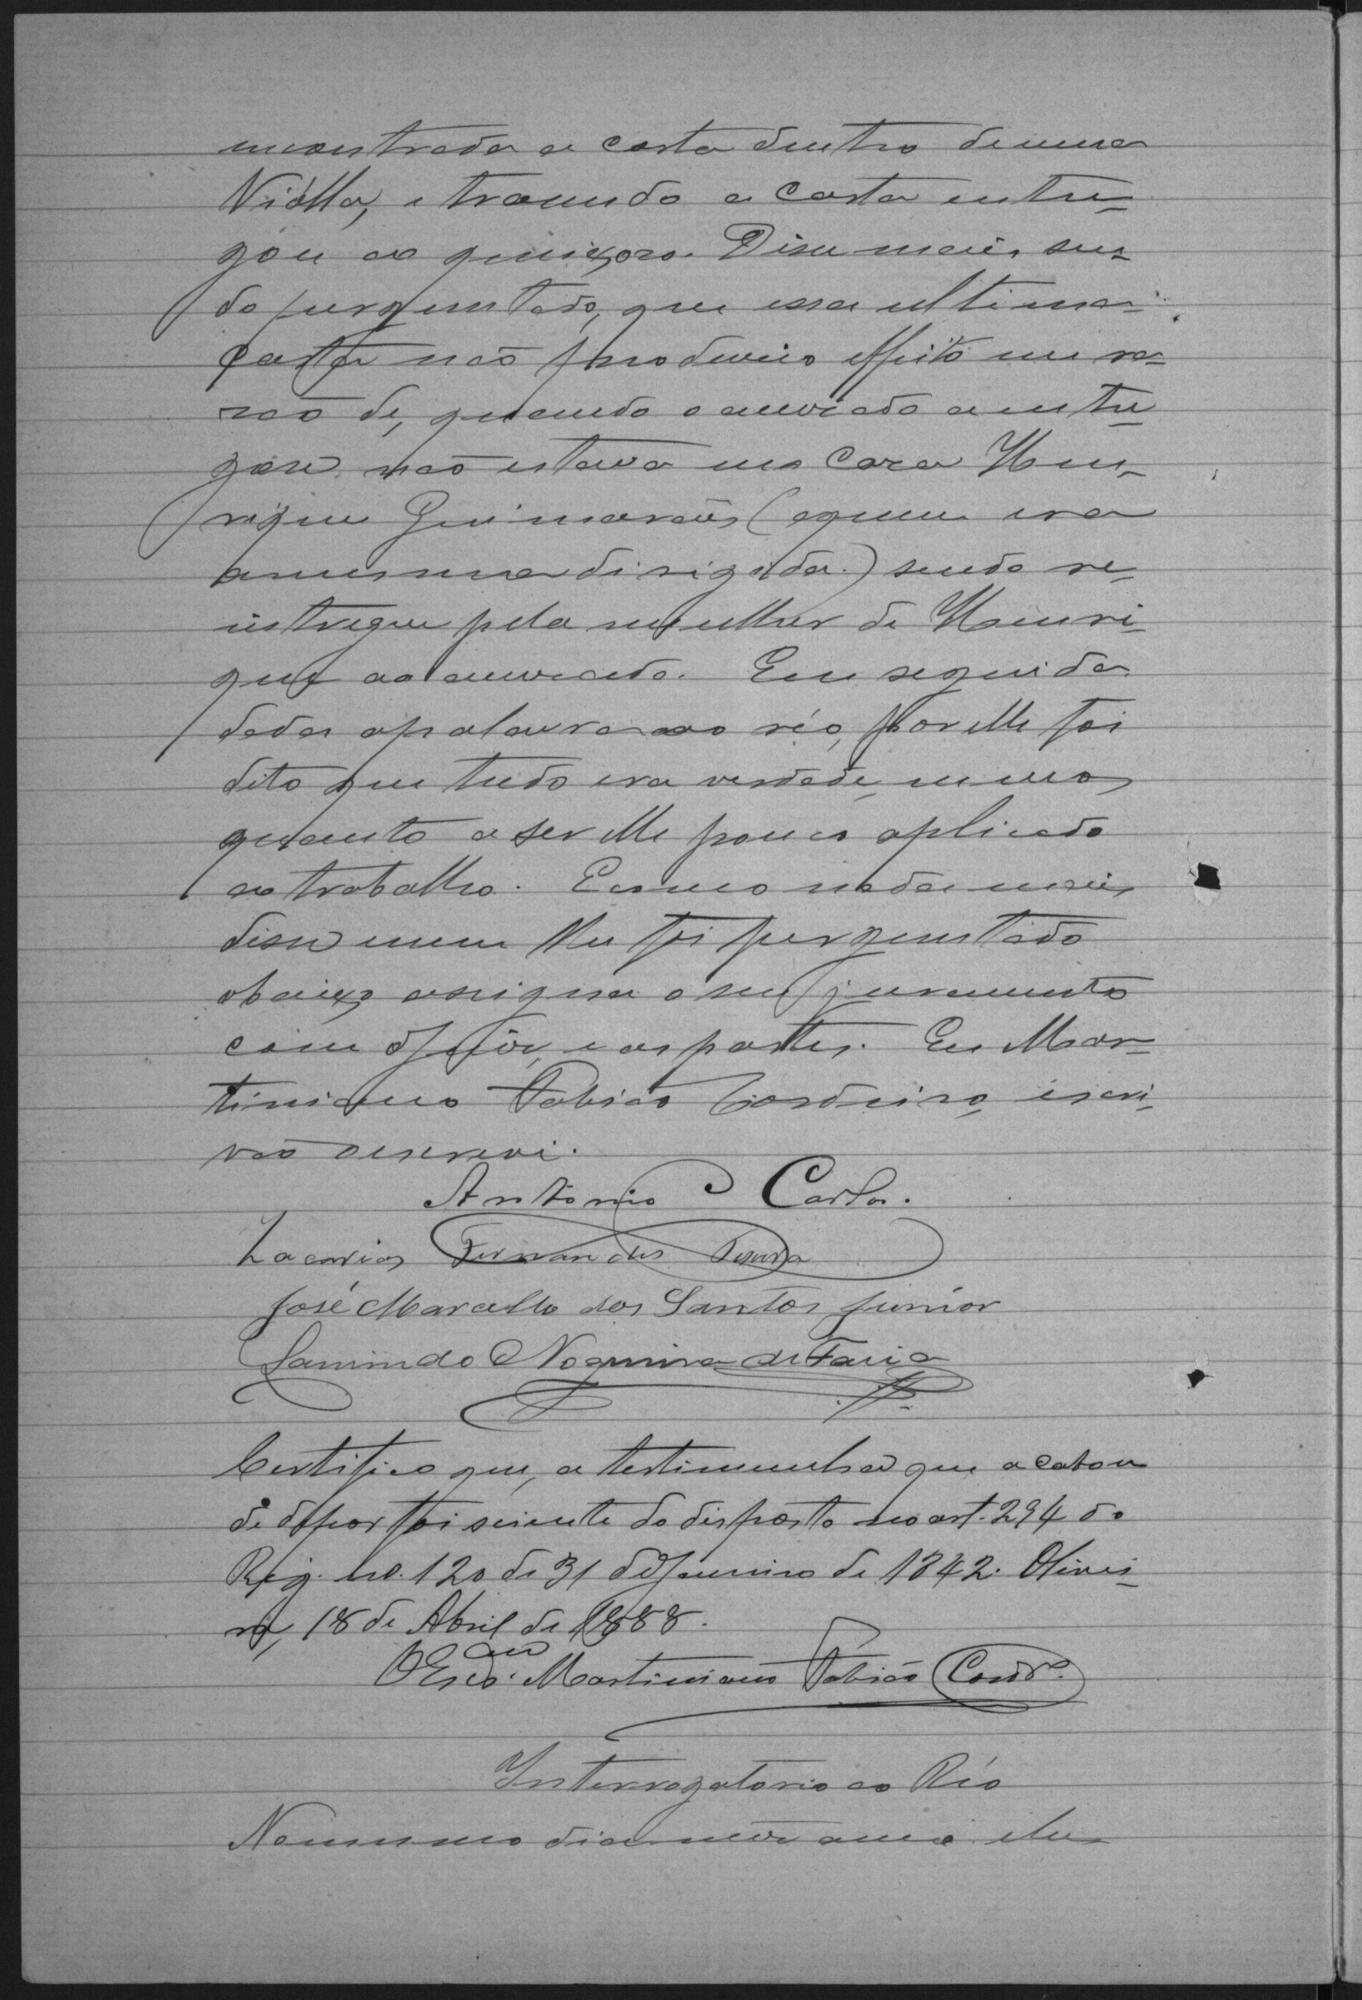 encontrada a carta dentro de uma
Viólla, e trasendo a carta entre-
gou ao queixoso. Disse mais, sen-
do perguntado, que essa ultima
carta não produsio effeito em ra-
zão de, quando o accusado a entre-
gou não estava na casa Hen-
rique Guimarães (aquem era
amesma dirigida.) sendo re-
intregue pela mulher de Henri-
que ao accusado. Em seguida
dada apalavra ao réo, por elle foi
dito que tudo era verdade, menos
quanto a ser elle pouco aplicado
ao trabalho. Ecomo nada mais
disse nem lhe foi perguntado
abaixo assigna o seu juramento
com o Juiz, e as partes. Eu Mar-
tiniano Fabião Cordeiro, escri-
vão o escrevi.
Antonio Carlos.
Zacarias Fernandes
José Marcello dos Santos Junior
Nogueira de Faria
Certifico que, a testimunha que acabou
de depor foi sciente do disposto no art. 294 do
Reg. no. 120 de 31 de Janeiro de 1842. Olivei-
ra, 18 de Abril de 1888.
O Escão. Martiniano Fabião Cordro.
Interrogatorio ao Réo
No mesmo dia mez anno e lu-